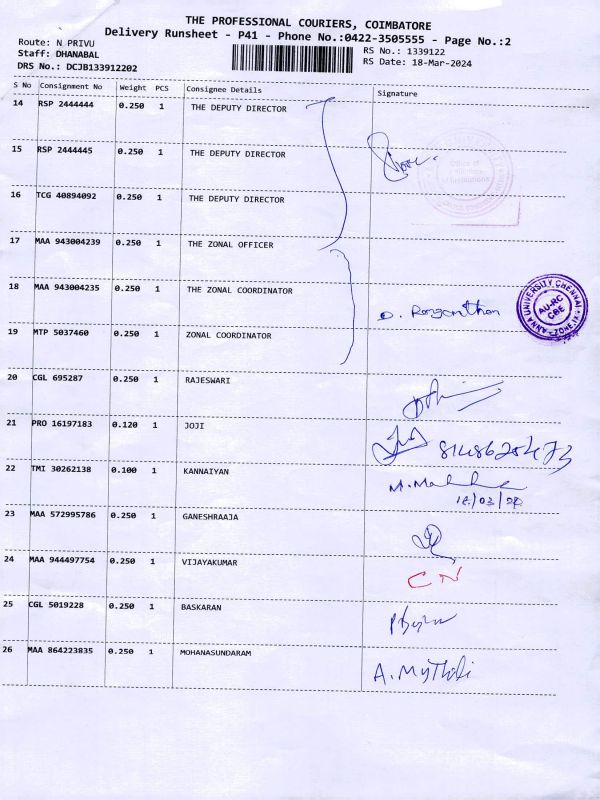 THE PROFESSIONAL COURIERS, COIMBATORE
Delivery Runsheet - P41 - Phone No.:0422-3505555 - Page No.:2
Route: N PRIVU
Staff: DHANABAL
DRS No.: DCJB133912202
RS No.: 1339122
RS Date: 18-Mar-2024
S No Consignment No Weight PCS Consignee Details Signature
14 RSP 2444444 0.250 1 THE DEPUTY DIRECTOR
15 RSP 2444445 0.250 1 THE DEPUTY DIRECTOR
16 TCG 40894092 0.250 1 THE DEPUTY DIRECTOR
17 MAA 943004239 0.250 1 THE ZONAL OFFICER
18 MAA 943004235 0.250 1 THE ZONAL COORDINATOR
ANNA UNIVERSITY CHENNAI
AU-RC
CBE
19 MTP 5037460 0.250 1 ZONAL COORDINATOR
20 CGL 695287 0.250 1 RAJESWARI
21 PRO 16197183 0.120 1 JOJI
22 TMI 30262138 0.100 1 KANNAIYAN
23 MAA 572995786 0.250 1 GANESHRAAJA
24 MAA 944497754 0.250 1 VIJAYAKUMAR CN
25 CGL 5019228 0.250 1 BASKARAN
26 MAA 864223835 0.250 1 MOHANASUNDARAM A. Mythili